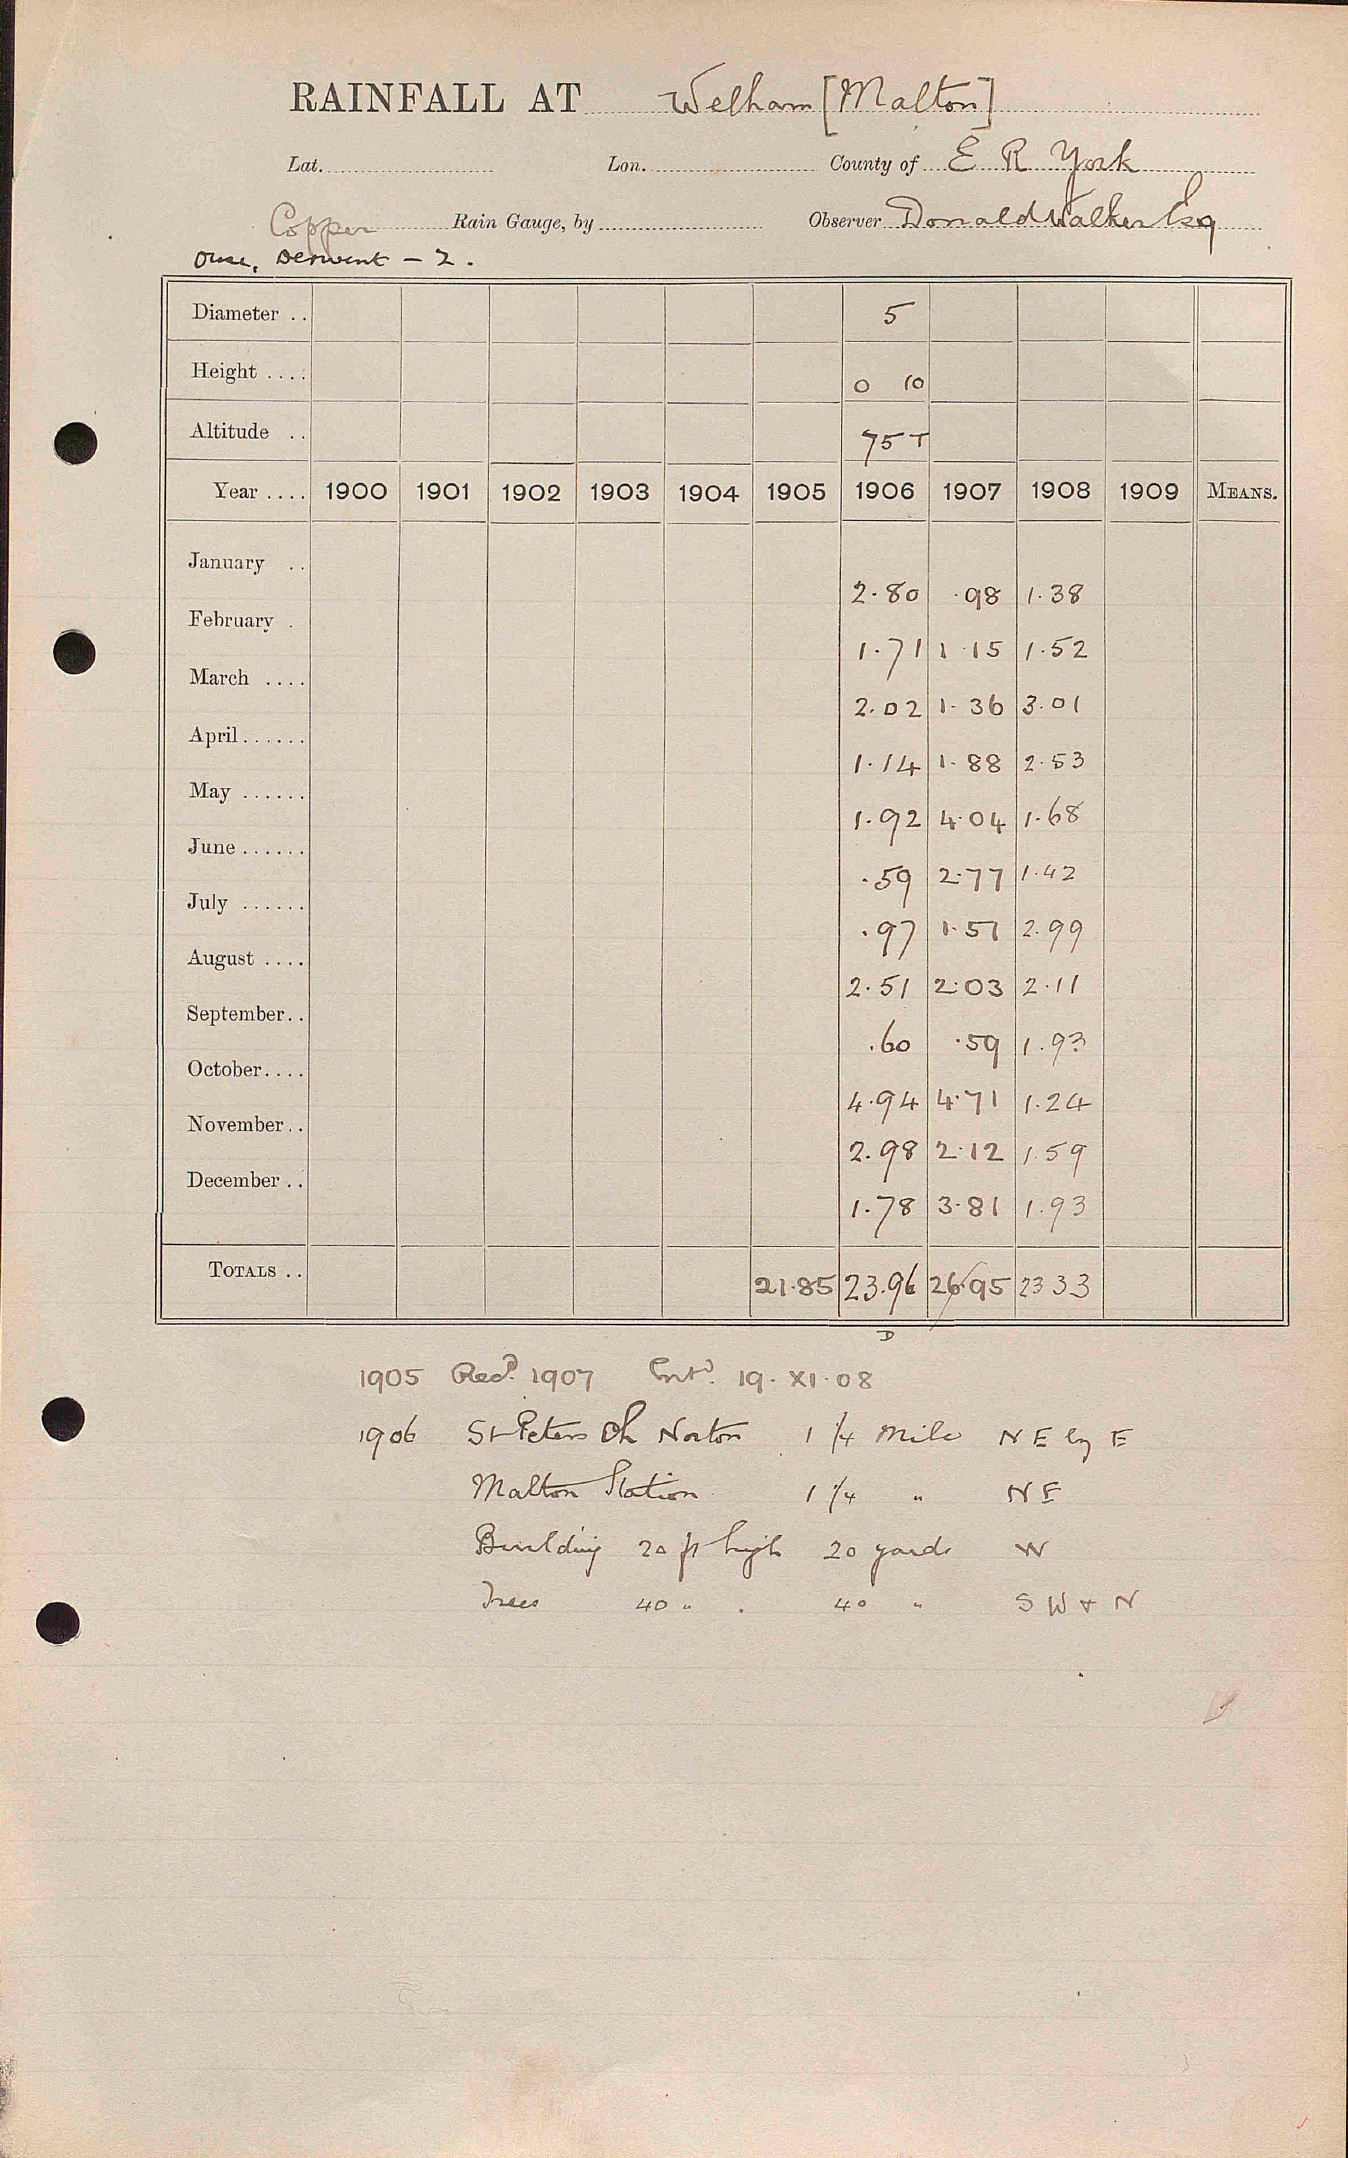 RAINFALL AT Welham [Malton]
Lat. Lon. County of E R York
Copper Rain Gauge, by Observer Donald Walker Esq
Ouse, Derwent - 2.
Diameter .. 5
Height .... 0 10
Altitude .. 75 T
Year .... 1900 1901 1902 1903 1904 1905 1906 1907 1908 1909 MEANS.
January .. 2.80 .98 1.38
February . 1.71 1.15 1.52
March .... 2.02 1.36 3.01
April...... 1.14 1.88 2.53
May ...... 1.92 4.04 1.68
June ...... .59 2.77 1.42
July ...... .97 1.51 2.99
August .... 2.51 2.03 2.11
September.. .60 .59 1.93
October.... 4.94 4.71 1.24
November.. 2.98 2.12 1.59
December .. 1.78 3.81 1.93
TOTALS .. 21.85 23.96 26.95 23 33
D
1905 Recd. 1907 Entd. 19.XI.08
1906 St Peters Ch Norton 1 1/4 Mile N E by E
Malton Station 1 1/4 " N E
Building 20 ft high 20 yards W
Trees 40 " . 40 " S W + N